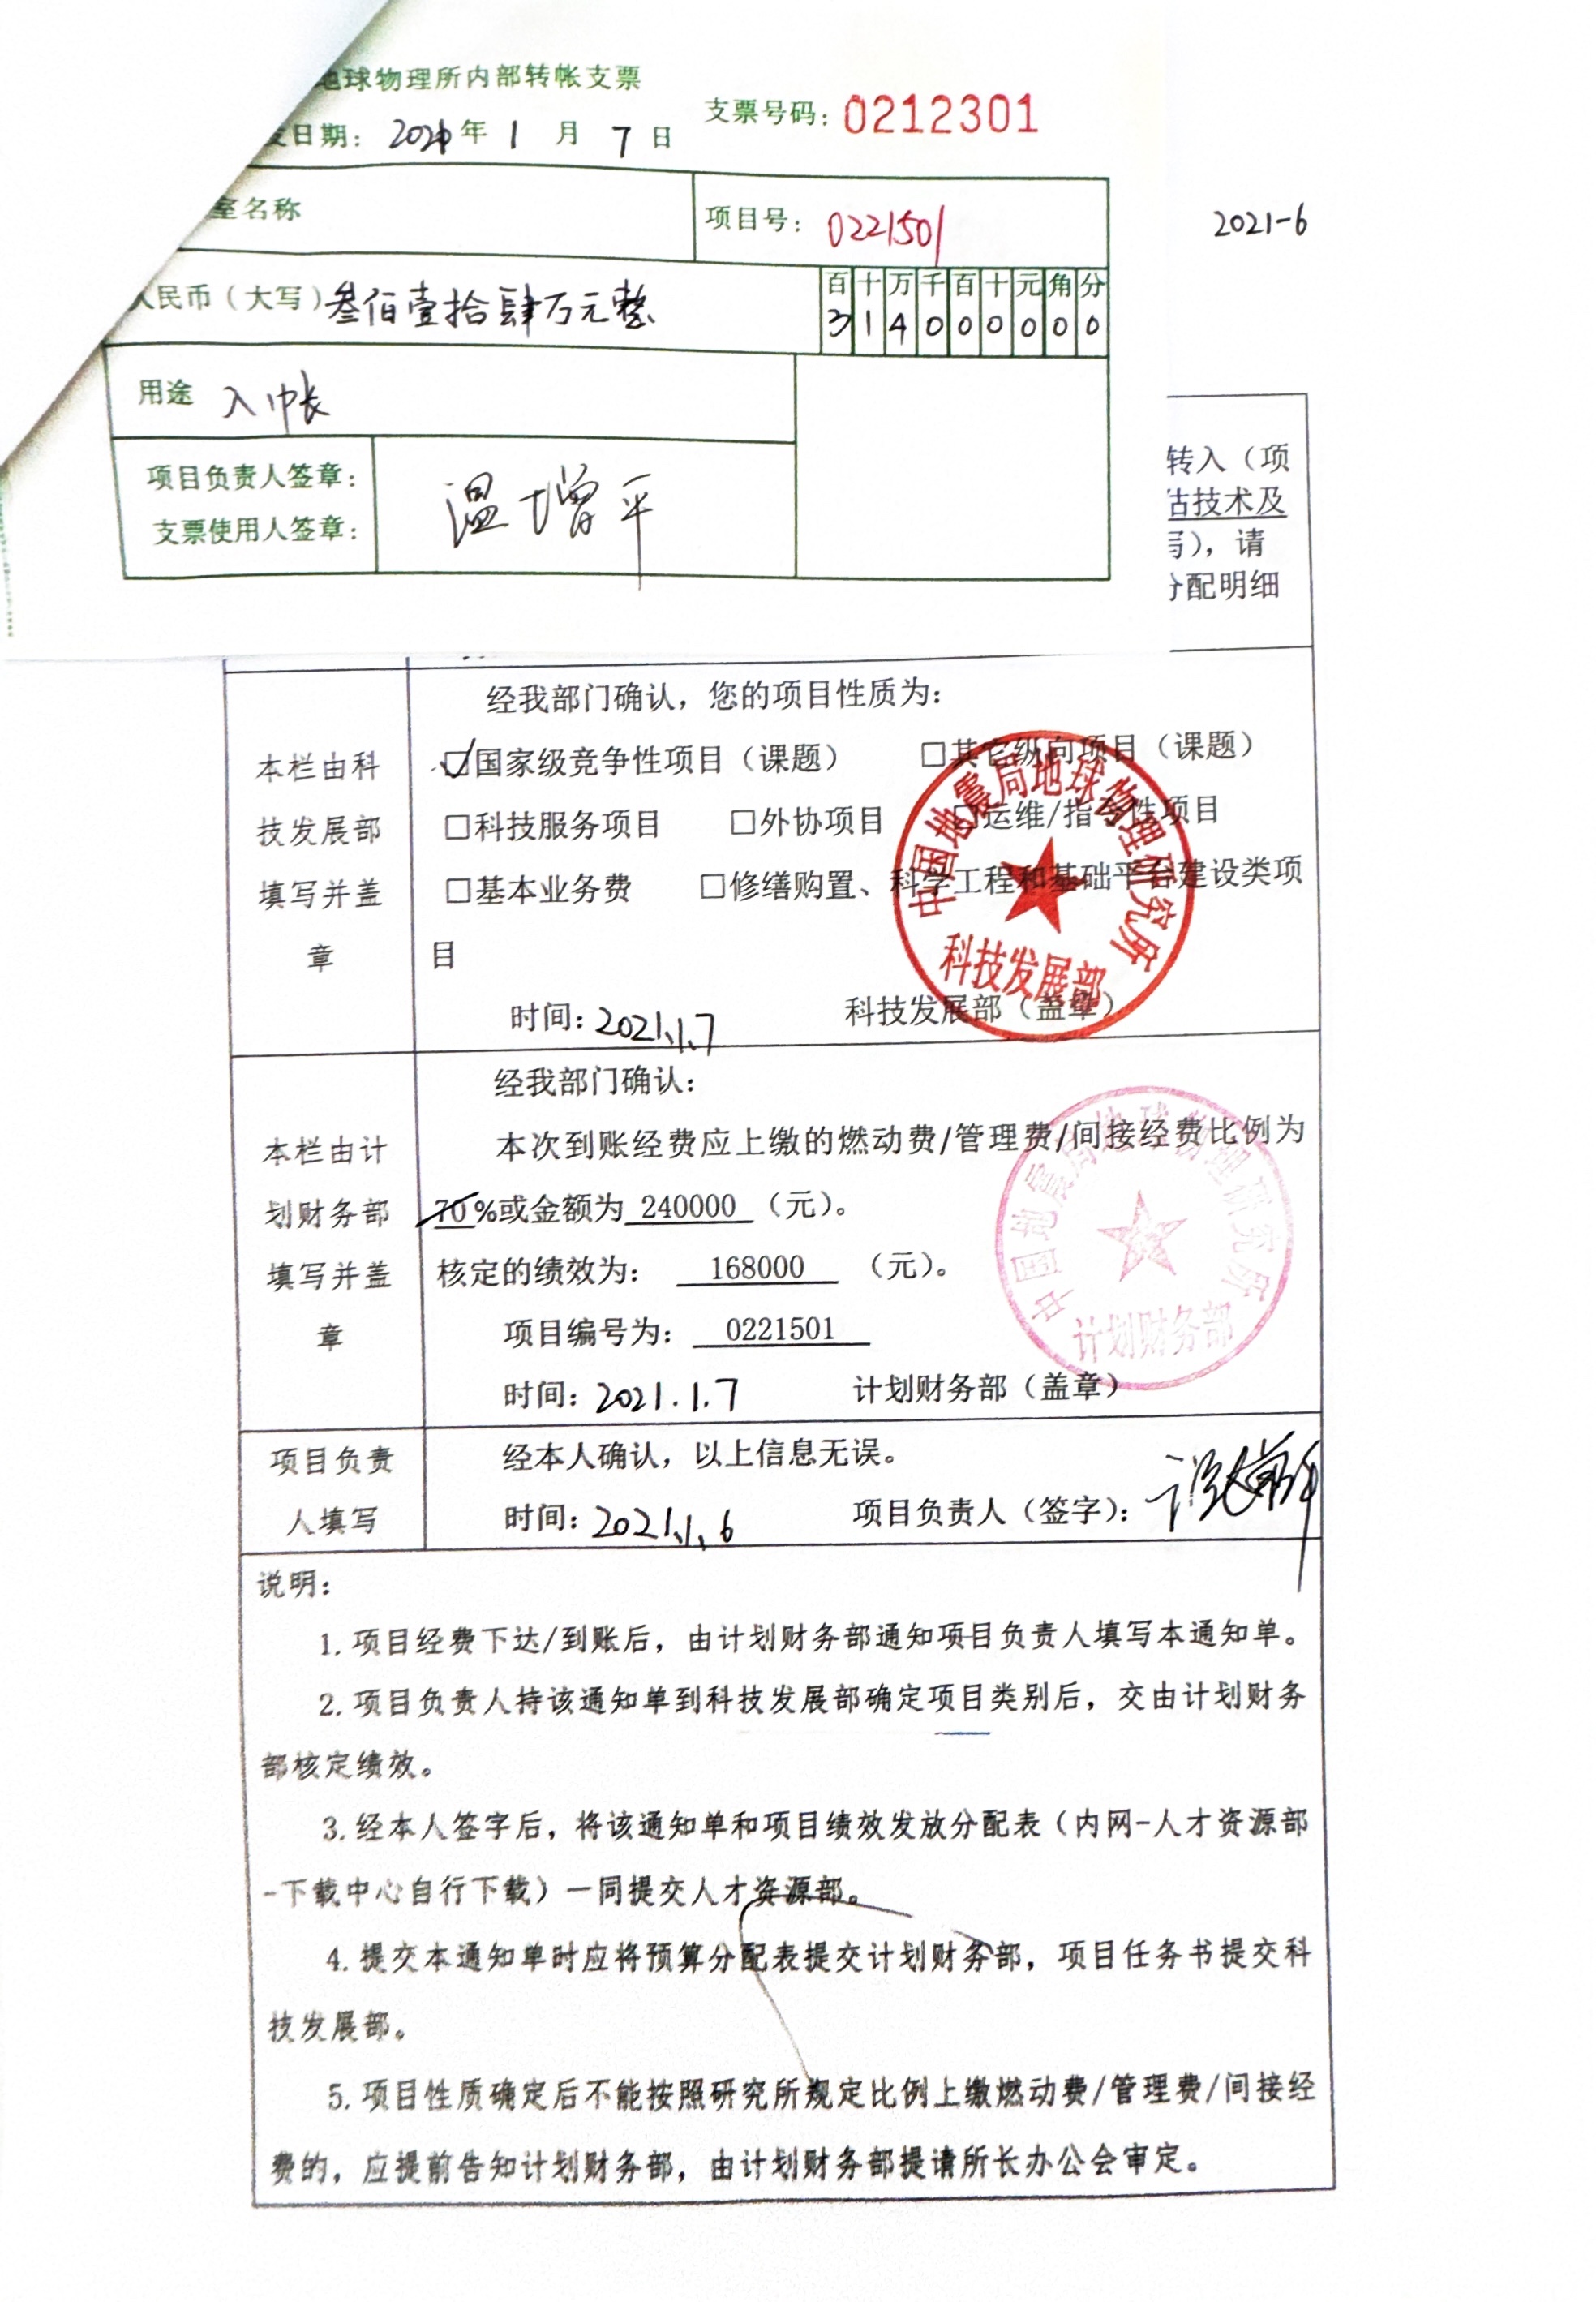 地球物理所内部转帐支票
支票号码：0212301
发日期：2021年1月7日
室名称
项目号：0221501
2021-6
人民币（大写）叁佰壹拾肆万元整
百十万千百十元角分
314000000
用途 入帐
项目负责人签章：
支票使用人签章：
温增平
转入（项
估技术及
写），请
分配明细
经我部门确认，您的项目性质为：
本栏由科
技发展部
填写并盖
章
☑国家级竞争性项目（课题） □其它纵向项目（课题）
□科技服务项目 □外协项目 □运维/指令性项目
□基本业务费 □修缮购置、科学工程和基础平台建设类项
目
时间：2021.1.7 科技发展部（盖章）
中国地震局地球物理研究所
科技发展部
经我部门确认：
本栏由计
划财务部
填写并盖
章
本次到账经费应上缴的燃动费/管理费/间接经费比例为
70%或金额为 240000 （元）。
核定的绩效为： 168000 （元）。
项目编号为： 0221501
时间：2021.1.7 计划财务部（盖章）
中国地震局地球物理研究所
计划财务部
项目负责
人填写
经本人确认，以上信息无误。
时间：2021.1.6 项目负责人（签字）：
说明：
1.项目经费下达/到账后，由计划财务部通知项目负责人填写本通知单。
2.项目负责人持该通知单到科技发展部确定项目类别后，交由计划财务
部核定绩效。
3.经本人签字后，将该通知单和项目绩效发放分配表（内网-人才资源部
-下载中心自行下载）一同提交人才资源部。
4.提交本通知单时应将预算分配表提交计划财务部，项目任务书提交科
技发展部。
5.项目性质确定后不能按照研究所规定比例上缴燃动费/管理费/间接经
费的，应提前告知计划财务部，由计划财务部提请所长办公会审定。